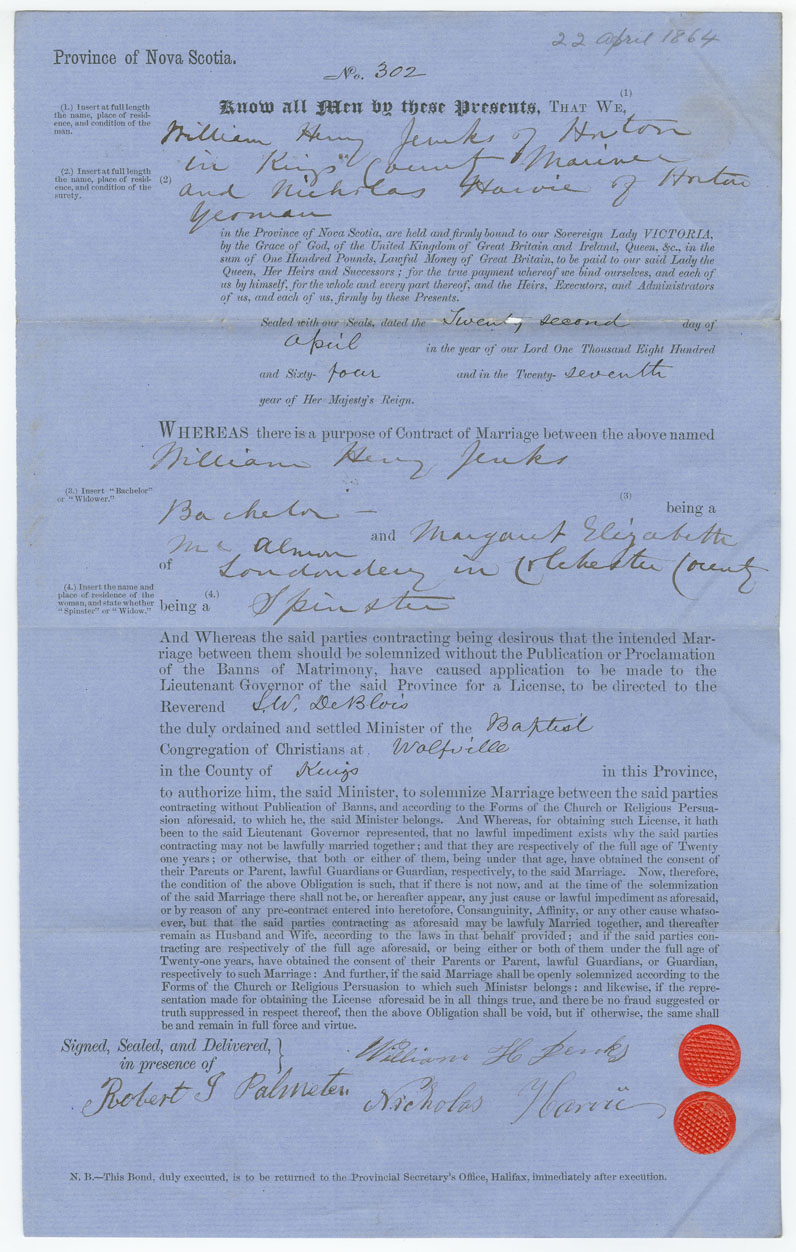 22 April 1864
Province of Nova Scotia.
No. 302
(1.) Insert at full length
the name, place of resid-
ence, and condition of the
man.
(1)
Know all Men by these Presents, THAT WE,
William Henry Jenks of Horton
in Kings County Mariner
(2.) Insert at full length
the name, place of resid-
ence, and condition of the
surety.
(2)
and Nicholas Harvie of Horton
Yeoman
in the Province of Nova Scotia, are held and firmly bound to our Sovereign Lady VICTORIA,
by the Grace of God, of the United Kingdom of Great Britain and Ireland, Queen, &c., in the
sum of One Hundred Pounds, Lawful Money of Great Britain, to be paid to our said Lady the
Queen, Her Heirs and Successors; for the true payment whereof we bind ourselves, and each of
us by himself, for the whole and every part thereof, and the Heirs, Executors, and Administrators
of us, and each of us, firmly by these Presents.
Sealed with our Seals, dated the Twenty second day of
April in the year of our Lord One Thousand Eight Hundred
and Sixty- four and in the Twenty- seventh
year of Her Majesty's Reign.
WHEREAS there is a purpose of Contract of Marriage between the above named
William Henry Jenks
(3.) Insert "Bachelor"
or "Widower."
(3)
being a
Bachelor
and Margaret Elizabeth
Mc Almon
of Londonderry in Colchester County
(4.) Insert the name and
place of residence of the
woman, and state whether
"Spinster" or "Widow."
(4.)
being a Spinster
And Whereas the said parties contracting being desirous that the intended Mar-
riage between them should be solemnized without the Publication or Proclamation
of the Banns of Matrimony, have caused application to be made to the
Lieutenant Governor of the said Province for a License, to be directed to the
Reverend S.W. DeBlois
the duly ordained and settled Minister of the Baptist
Congregation of Christians at Wolfville
in the County of Kings in this Province,
to authorize him, the said Minister, to solemnize Marriage between the said parties
contracting without Publication of Banns, and according to the Forms of the Church or Religious Persua-
sion aforesaid, to which he, the said Minister belongs. And Whereas, for obtaining such License, it hath
been to the said Lieutenant Governor represented, that no lawful impediment exists why the said parties
contracting may not be lawfully married together; and that they are respectively of the full age of Twenty
one years; or otherwise, that both or either of them, being under that age, have obtained the consent of
their Parents or Parent, lawful Guardians or Guardian, respectively, to the said Marriage. Now, therefore,
the condition of the above Obligation is such, that if there is not now, and at the time of the solemnization
of the said Marriage there shall not be, or hereafter appear, any just cause or lawful impediment as aforesaid,
or by reason of any pre-contract entered into heretofore, Consanguinity, Affinity, or any other cause whatso-
ever, but that the said parties contracting as aforesaid may be lawfully Married together, and thereafter
remain as Husband and Wife, according to the laws in that behalf provided; and if the said parties con-
tracting are respectively of the full age aforesaid, or being either or both of them under the full age of
Twenty-one years, have obtained the consent of their Parents or Parent, lawful Guardians, or Guardian,
respectively to such Marriage: And further, if the said Marriage shall be openly solemnized according to the
Forms of the Church or Religious Persuasion to which such Minister belongs: and likewise, if the repre-
sentation made for obtaining the License aforesaid be in all things true, and there be no fraud suggested or
truth suppressed in respect thereof, then the above Obligation shall be void, but if otherwise, the same shall
be and remain in full force and virtue.
Signed, Sealed, and Delivered,
in presence of
William H Jenks
Robert S Palmeter
Nicholas Harvie
N. B.—This Bond, duly executed, is to be returned to the Provincial Secretary's Office, Halifax, immediately after execution.